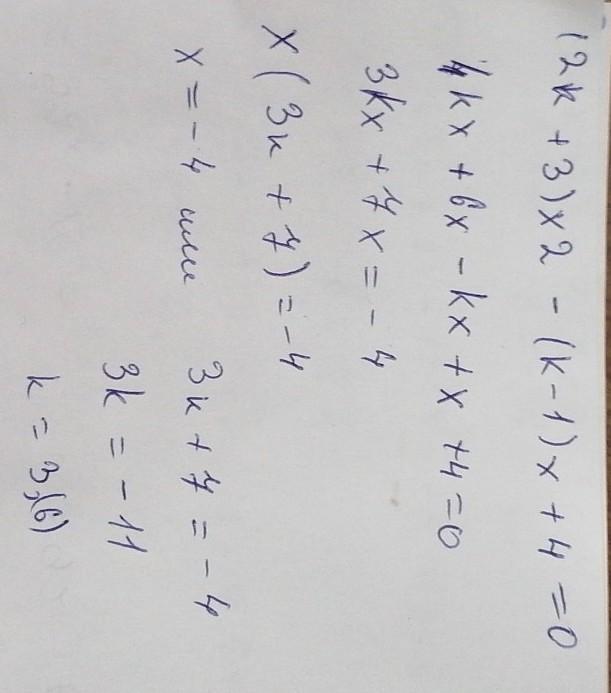 (2k + 3)x2 - (k - 1)x + 4 = 0
4kx + 6x - kx + x + 4 = 0
3kx + 7x = - 4
x(3k + 7) = - 4
x = - 4 или 3k + 7 = - 4
3k = - 11
k = 3,(6)